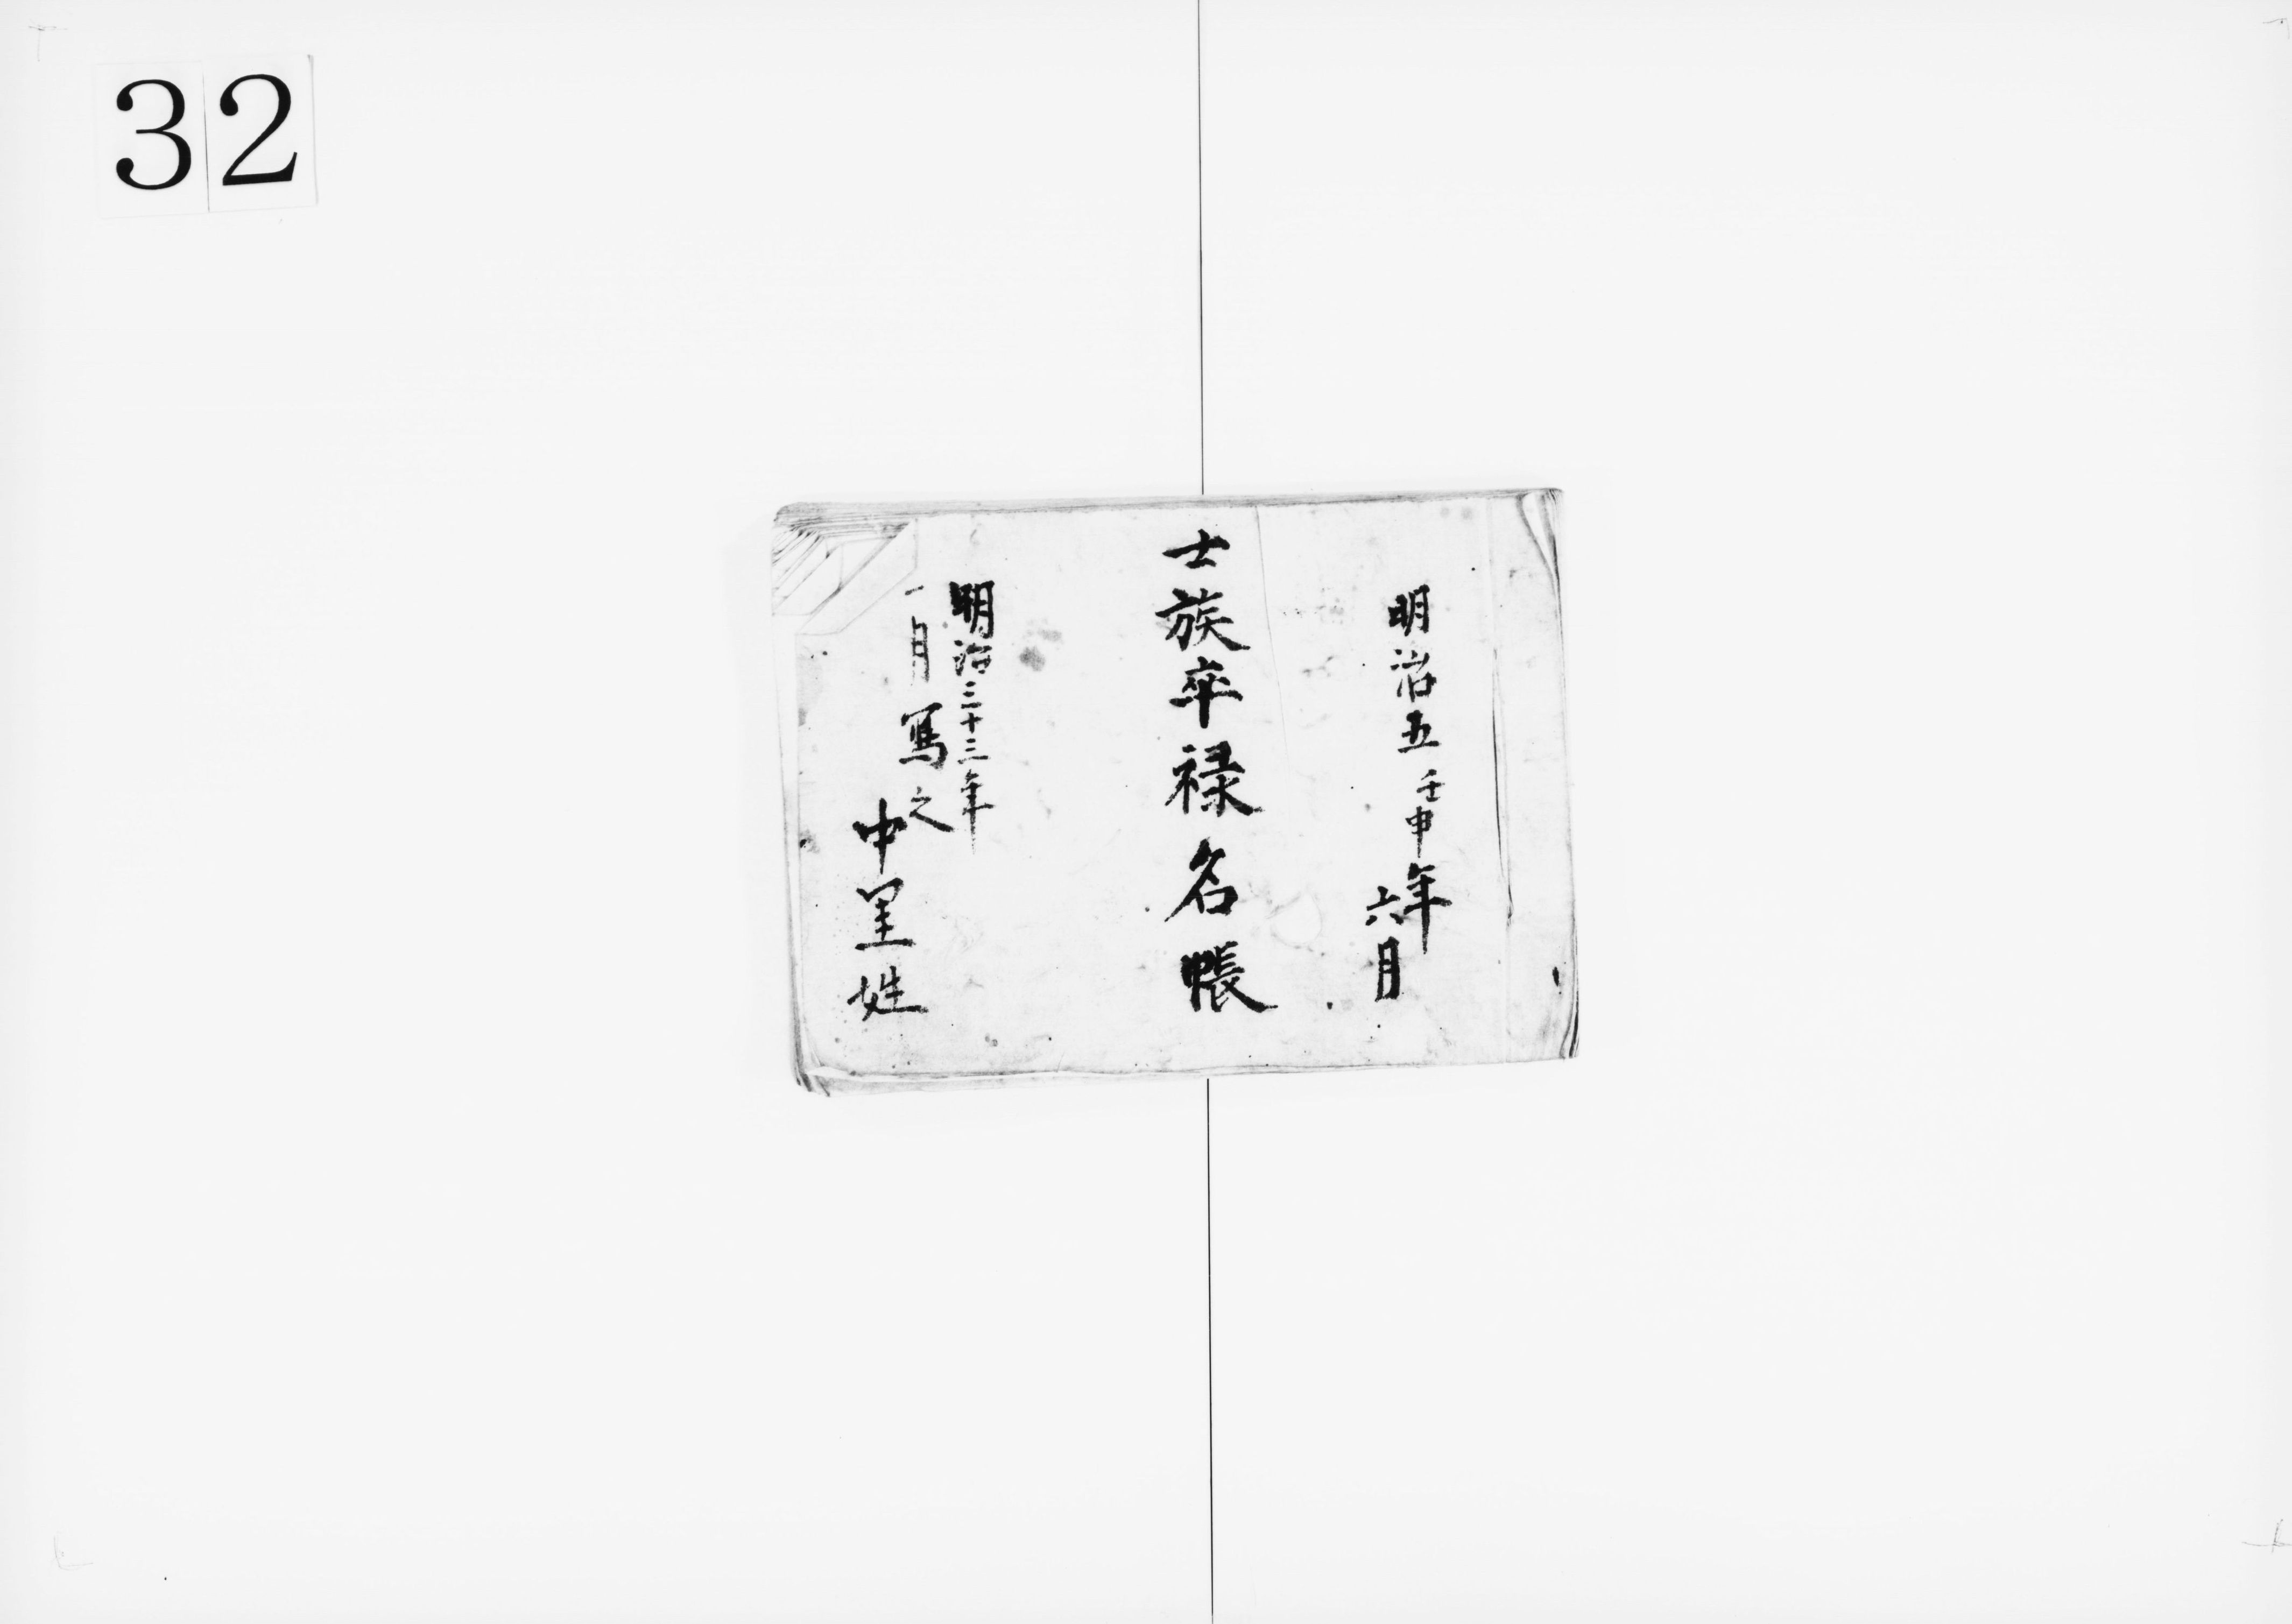 32
明治五壬申年
六月
士族卒禄名帳
明治三十三年
一月写之
中里姓